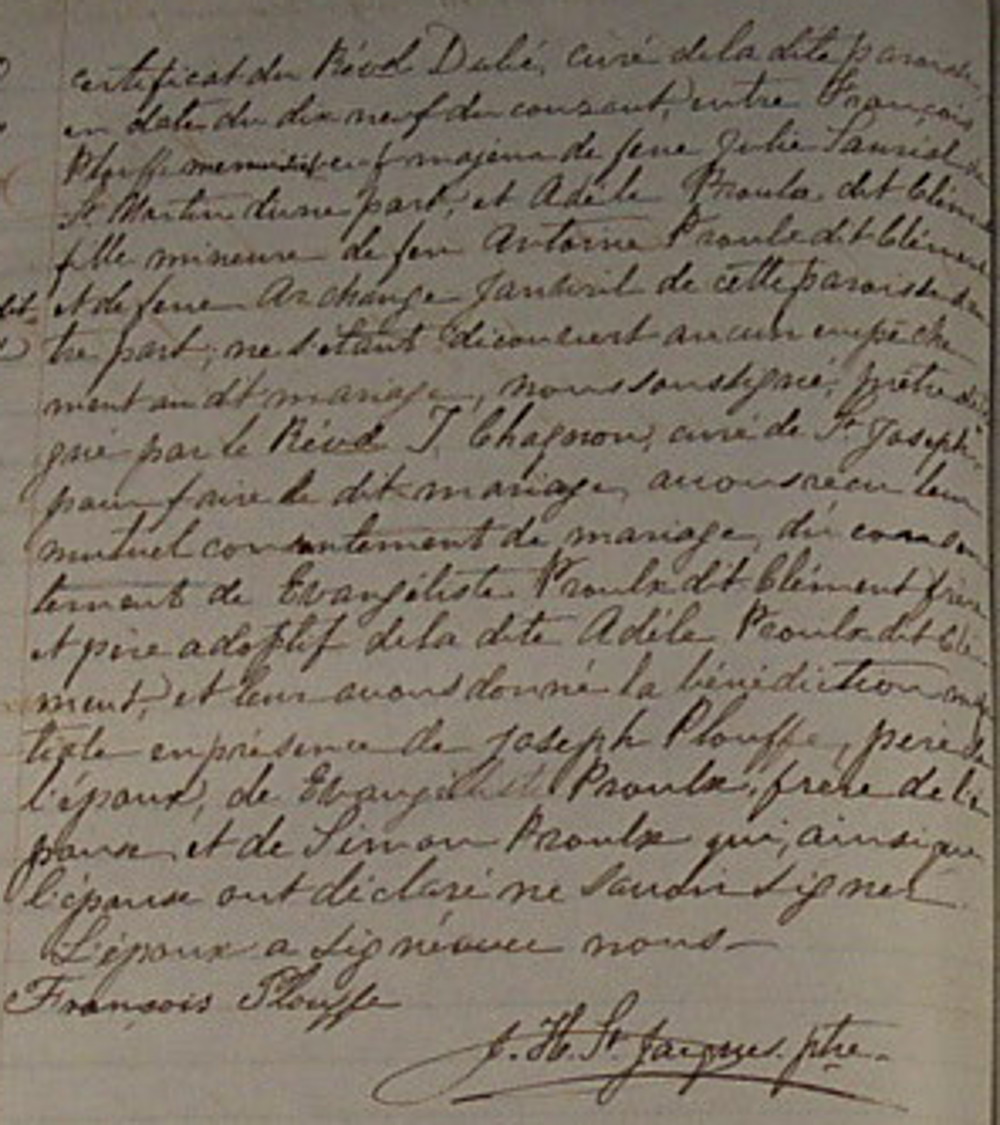 certificat du Révd Dulié, curé de la dite paroisse,
en date du dix neuf du courant, entre François
Plouffe menuisier f majeur de feue Julie Sauriol de
St Martin d'une part, et Adèle Proulx dit Clément
fille mineure de feu Antoine Proulx dit Clément
et de feue Archange Janvril de cette paroisse d'au
tre part; ne s'étant découvert aucun empêche
ment au dit mariage, nous soussigné, prêtre dési
gné par le Révd T. Chagnon, curé de St Joseph
pour faire le dit mariage, avons reçu leur
mutuel consentement de mariage, du consen
tement de Evangéliste Proulx dit Clément frère
et père adoptif de la dite Adèle Proulx dit Clé
ment, et leur avons donné la bénédiction nup
tiale en présence de Joseph Plouffe, père de
l'époux, de Evangéliste Proulx, frère de l'é
pouse, et de Simon Proulx qui, ainsi que
l'épouse ont déclaré ne savoir signer
L'époux a signé avec nous
François Plouffe
J. H. St Jacques. ptre.